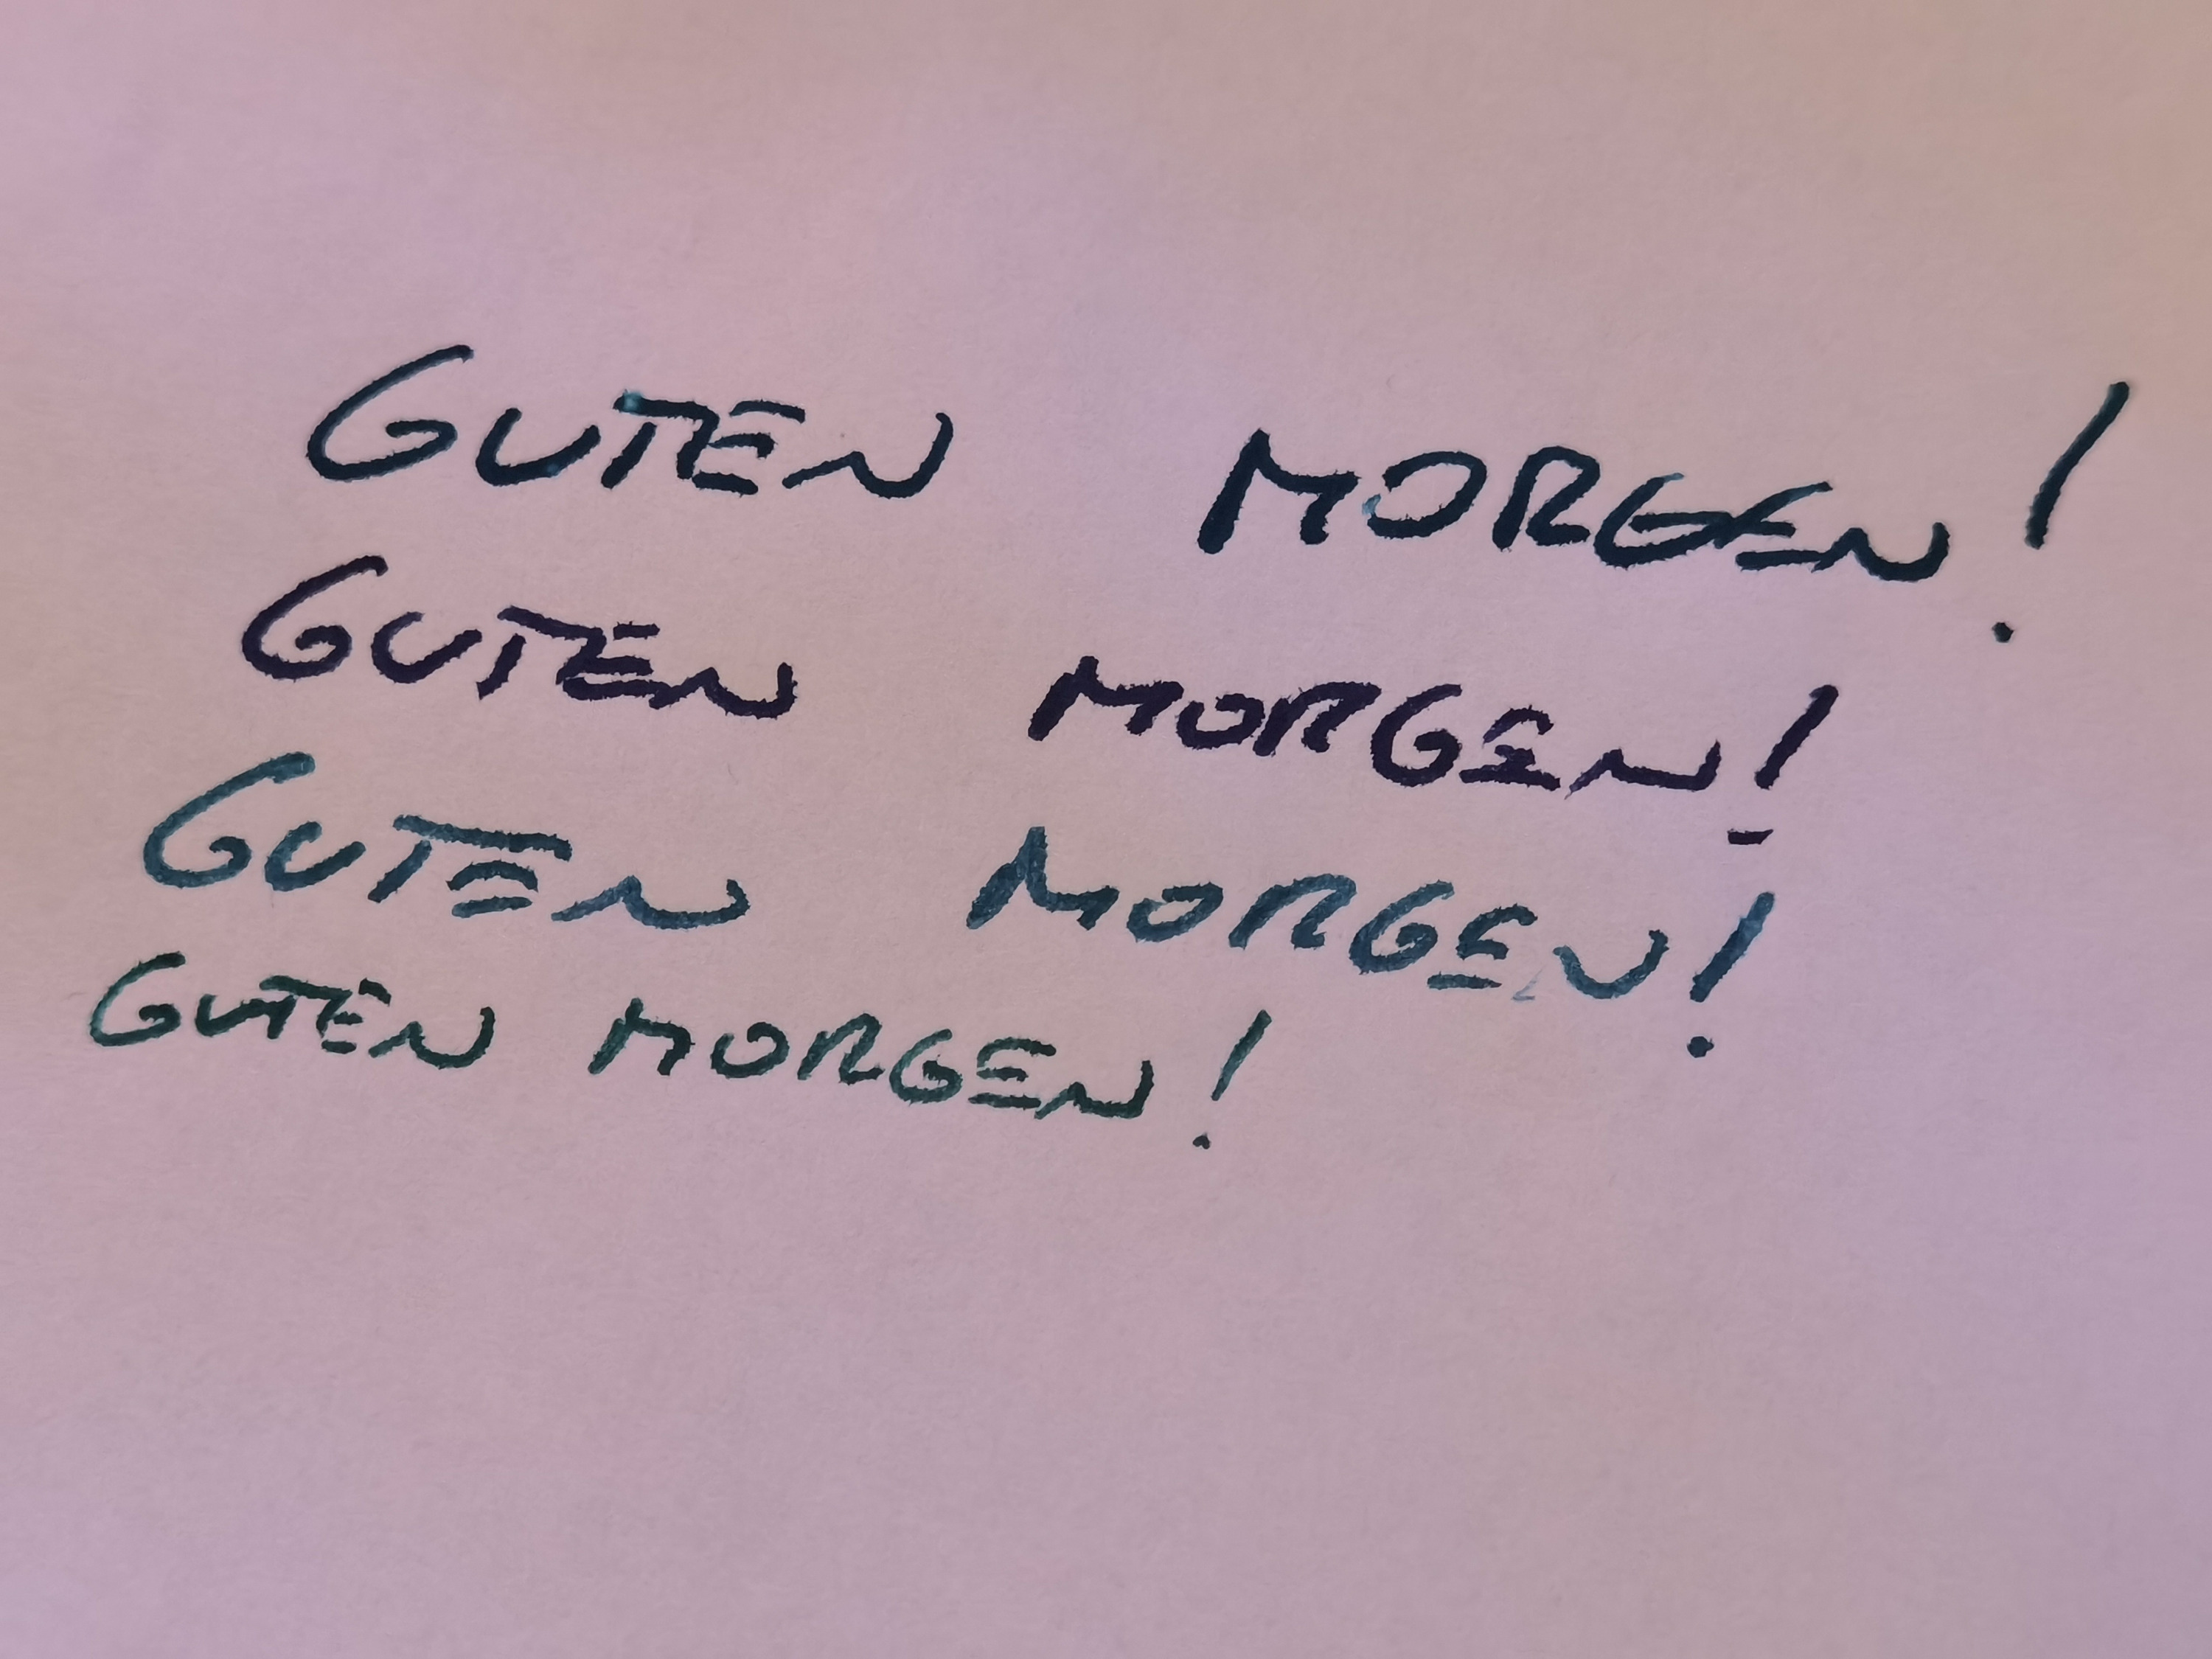 GUTEN MORGEN!
GUTEN MORGEN!
GUTEN MORGEN!
GUTEN MORGEN!